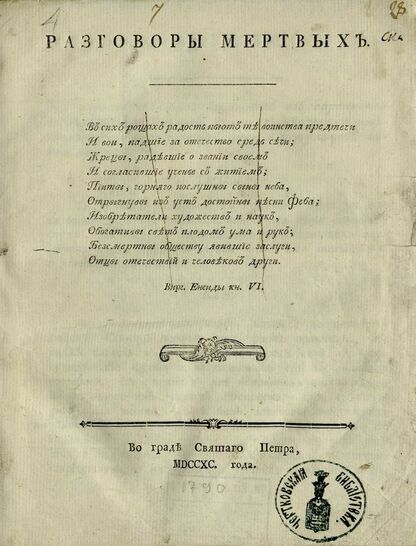 4
7
28
РАЗГОВОРЫ МЕРТВЫХЪ.
Въ сихъ рощахъ радость пьютъ тѣ воинства предтечи
И вои, падшіе за отечество средь сѣчи;
Жрецы, радѣвшіе о званіи своемъ
И согласившіе ученье съ житіемъ;
Піиты, горняго послушны согны неба,
Отрыгнувы ихъ устъ достойны пѣсни Феба;
Изобрѣтатели художествъ и наукъ,
Обогативы свѣтъ плодомъ ума и рукъ;
Безсмертны обществу явившіе заслуги,
Отцы отечествій и человѣковъ други.
Вирг. Енеиды кн. VI.
Во градѣ Святаго Петра,
MDCCXC. года.
1790
ЧЕРТКОВСКАЯ БИБЛІОТЕКА.